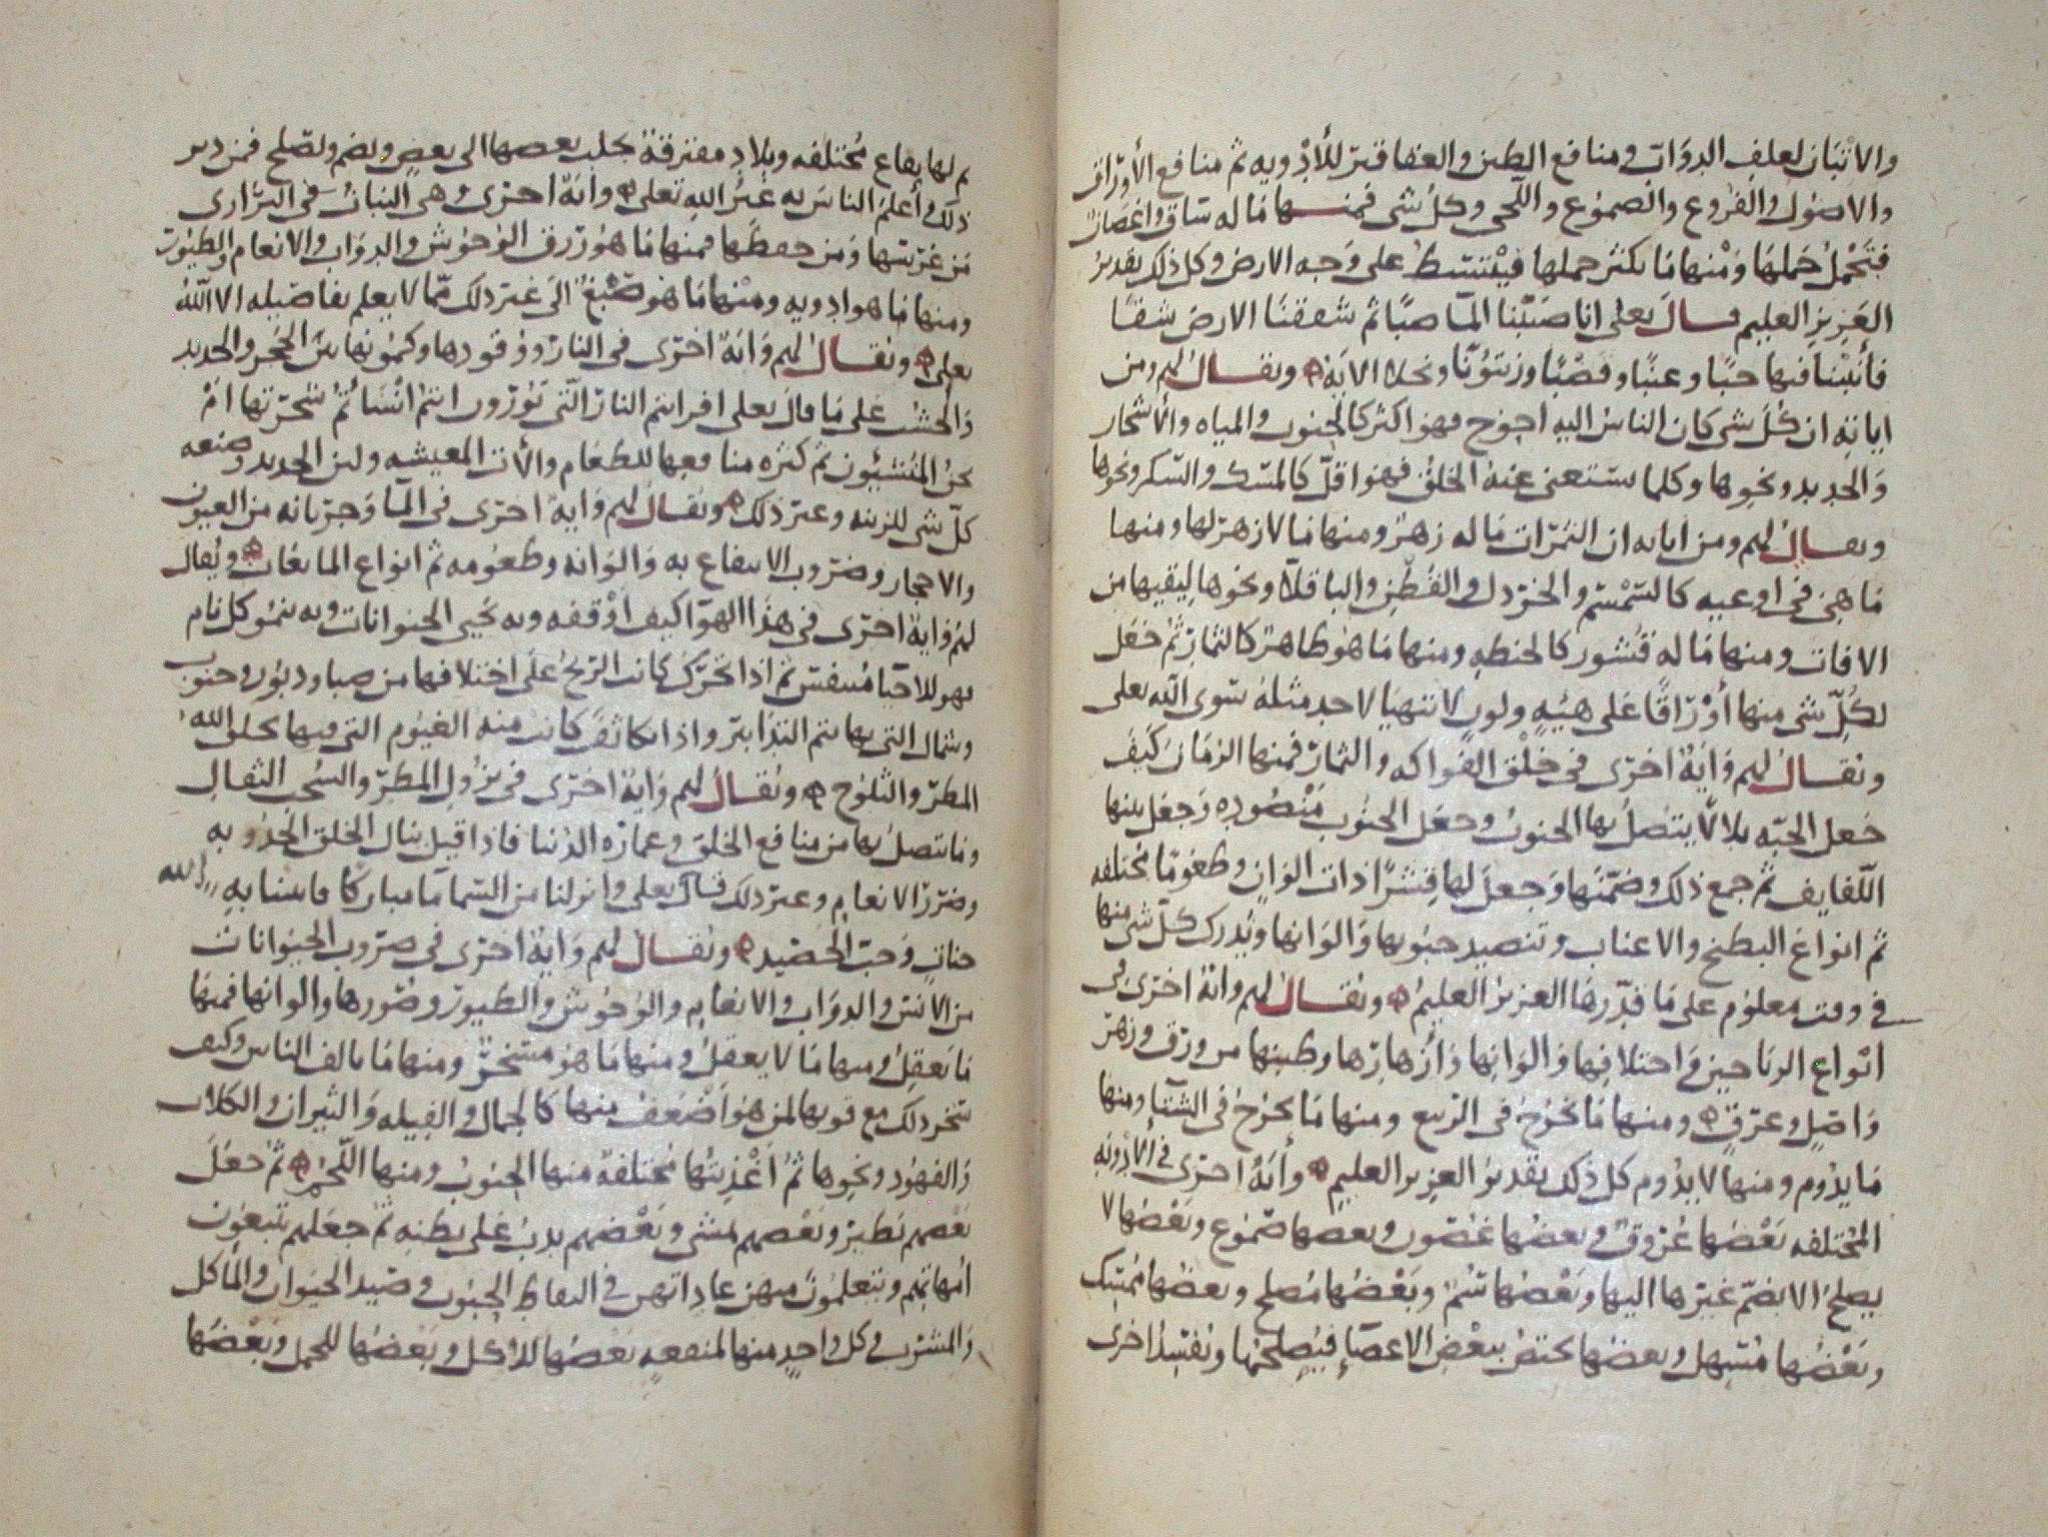 والاتبان لعلف الدوَات ومنافع الطين والعقاقير للأدويه ثم منافع الأوراق
والاصول والفروع والصموع واللحى وكل شى فمنها مَا له ساق واغصان
فتحمل حملها ومنها مَا يكثر حملها فينبسط على وَجه الارض وكل ذلك تقدير
العَزيزِ العليم قال تعلى انا صَبَبْنا المآ صبًّا ثم شققنَا الارض شقًا
فأنبتنا فيها حبًا وعنبًا وقضبًا وزيتونًا ونخلا الايَة ويقال لهم ومن
اياته ان كُلّ شى كان الناسُ اليه احوج فهو اكثر كالحبوب والمياه والأشجار
وَالحديد ونحوها وكلما يستغنى عنهُ الخلق فهو اقلّ كالمسك والسكر ونحوها
ويقال لهم ومن اياته ان الثمرات مَا له زهرٌ ومنها مَا لا زهر لها ومنها
مَا هى فى اوعيه كالسمسم والخردل والقطن والباقلا ونحوها ليقيها من
الافات ومنها مَا له قشور كالحنطه ومنها مَا هو ظاهر كالثمار ثم جعَل
لكلّ شى منها أوْرَاقًا عَلى هيئه ولون لا تتهيا لاحد مثله سوى الله تعلى
ويقال لهم وَايَة اخرى فى خلق الفواكه والثمار فمنها الرمان كيف
جعل الحَبّه يلا لا يتصل بها الحبوب وجعَل الحبوب منضوده وَجعَل بينها
اللفايف ثم جمع ذلك وضمّنها وَجعلَ لها قشرًا ذات الوَان وطعومًا مختلفه
ثم انواع البطيخ والاعناب وتنضيد حبوبها وَالوَانها ويُدرك كلّ شى منها
فى وقت معلوم على مَا قدّرهَا العزيز العليمُ ويقال لهم وايَة اخرى فى
انواع الرياحين وَاختلافها وَالوَانها وَأزهارها وطيبها من ورق وزهر
وَاصلٍ وعرقٍ ومنها مَا يخرُج فى الربيع ومنها مَا يخرج فى الشتآ ومنها
مَا يدُوم ومنها لا يدُوم كل ذلك تقدير العزيز العليم وأيَةٌ اخرى فى الأدْوية
المُختلفه بَعْضها عُروق وبعضُها غصُون وبعضها صمُوع وبَعْضها لا
يصلح الا بضمّ غيرها اليها وبَعْضها سُمٌ وبَعْضُها مُصلح وبعضُها مُمسك
وبَعْضُها مُسهل وبعضها يختص ببعْضِ الاعضآء فيُصلحُها ويُفسدُ اخرى
ثم لها بقاع مُختلفه وبلاد مفترقة يجلب بعضها الى بعضٍ ويضم ويصلح فمن دبر
ذلك وأعلم الناس به غير الله تعلى وايَةٌ اخرى وهى النبات فى البرارى
من غرسها وَمن حفظها فمنها مَا هو رزق الوُحُوش والدوَاب والانعام والطيور
ومنها مَا هو ادويه ومنها مَا هو صَبْغ الى غير ذلك ممّا لا يعلم تفاصيله الا اللهُ
تعلى ويقال لهم وَايَة اخرى فى النار ووقودها وكمُونها بين الحَجر والحديد
وَالخشب عَلى مَا قالَ تعلى افرايتم النار التى تورُون اانتم انْشَاتُمْ شجرتها امْ
نحنُ المُنشِئُون ثم كثره منافعها للطعام والأت المعيشه ولين الحديد وصنعه
كلّ شى للزينه وغير ذلك ويقال لهم وَايَةٌ اخرى فى المآ وَجرَيانه من العيون
والاحجار وضرُوب الانتفاع به وَالوَانه وطعُومه ثم انواع المايعات ويُقال
لهُم وَايَة اخرى فى هذَا الهوَا كيف اوْقفه وبه تحيى الحيوانات وبه ينمُو كل نام
فهو للاحيَا مُتنفس ثم اذا تحرّك كانت الريحُ عَلى اختلافها من صبا ودبُور وجنوب
وشمال التى بها يتم التدَابير واذا تكاثفَ كانت منه الغيُوم التى فيها يخلق اللهُ
المطر والثلوج ويقال لهم وَايَة اخرى فى نزُولِ المطر والسُحب الثقال
ومَا يتصلُ بها من منافع الخلق وعمارَه الدُنيا فاذا قيل ينال الخلق الجُدُوبه
وضرر الانعام وغير ذلك قال تعلى وانزلنا من السّما مَا مباركًا فانبتنا بهِ
جناتٍ وَحبّ الحَصيد ويقال لهم وَايَة اخرى فى ضرُوب الحيَوانات
من الانس والدوَاب والانعام والوُحُوش والطيور وصُورها والوانها فمنها
مَا يَعقلُ ومنها مَا لا يعقلُ ومنها مَا هو مسَخرٌ ومنها مَا يالف الناس وكيف
سَخر ذلك مع قوتها لمن هو أضْعَفُ منها كالجمال والفيله وَالثيران والكلاب
وَالفهُود ونحِوها ثُم أغذيتُها مُختلفة منها الحبوبُ ومنها اللَحُم ثُم جعَلَ
بَعْضهم يَطيرُ وبَعْضهم يمشى وبَعْضهم يدبّ عَلى بطنهِ ثم جعَلهم يتبعُون
امُهاتهم ويتعلمُون منهن عاداتهن فى التقاط الحبوب وصَيد الحَيوان والمأكل
وَالمشرب وكل وَاحدٍ منها لمنفعهٍ بَعْضهَا للأكل وبَعْضُها للحمل وبَعْضُها